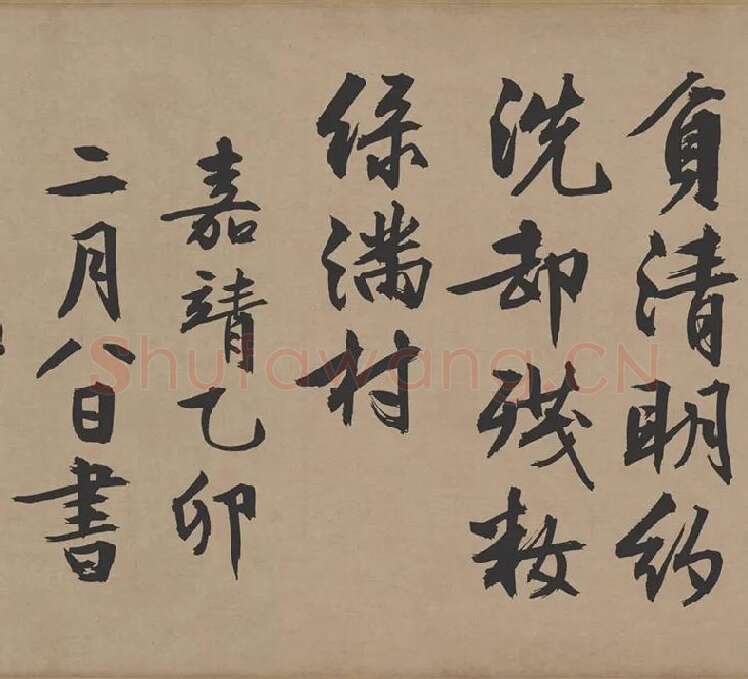 負清明約
洗却殘妝
綠滿村
嘉靖乙卯
二月八日書
Shufawang.CN